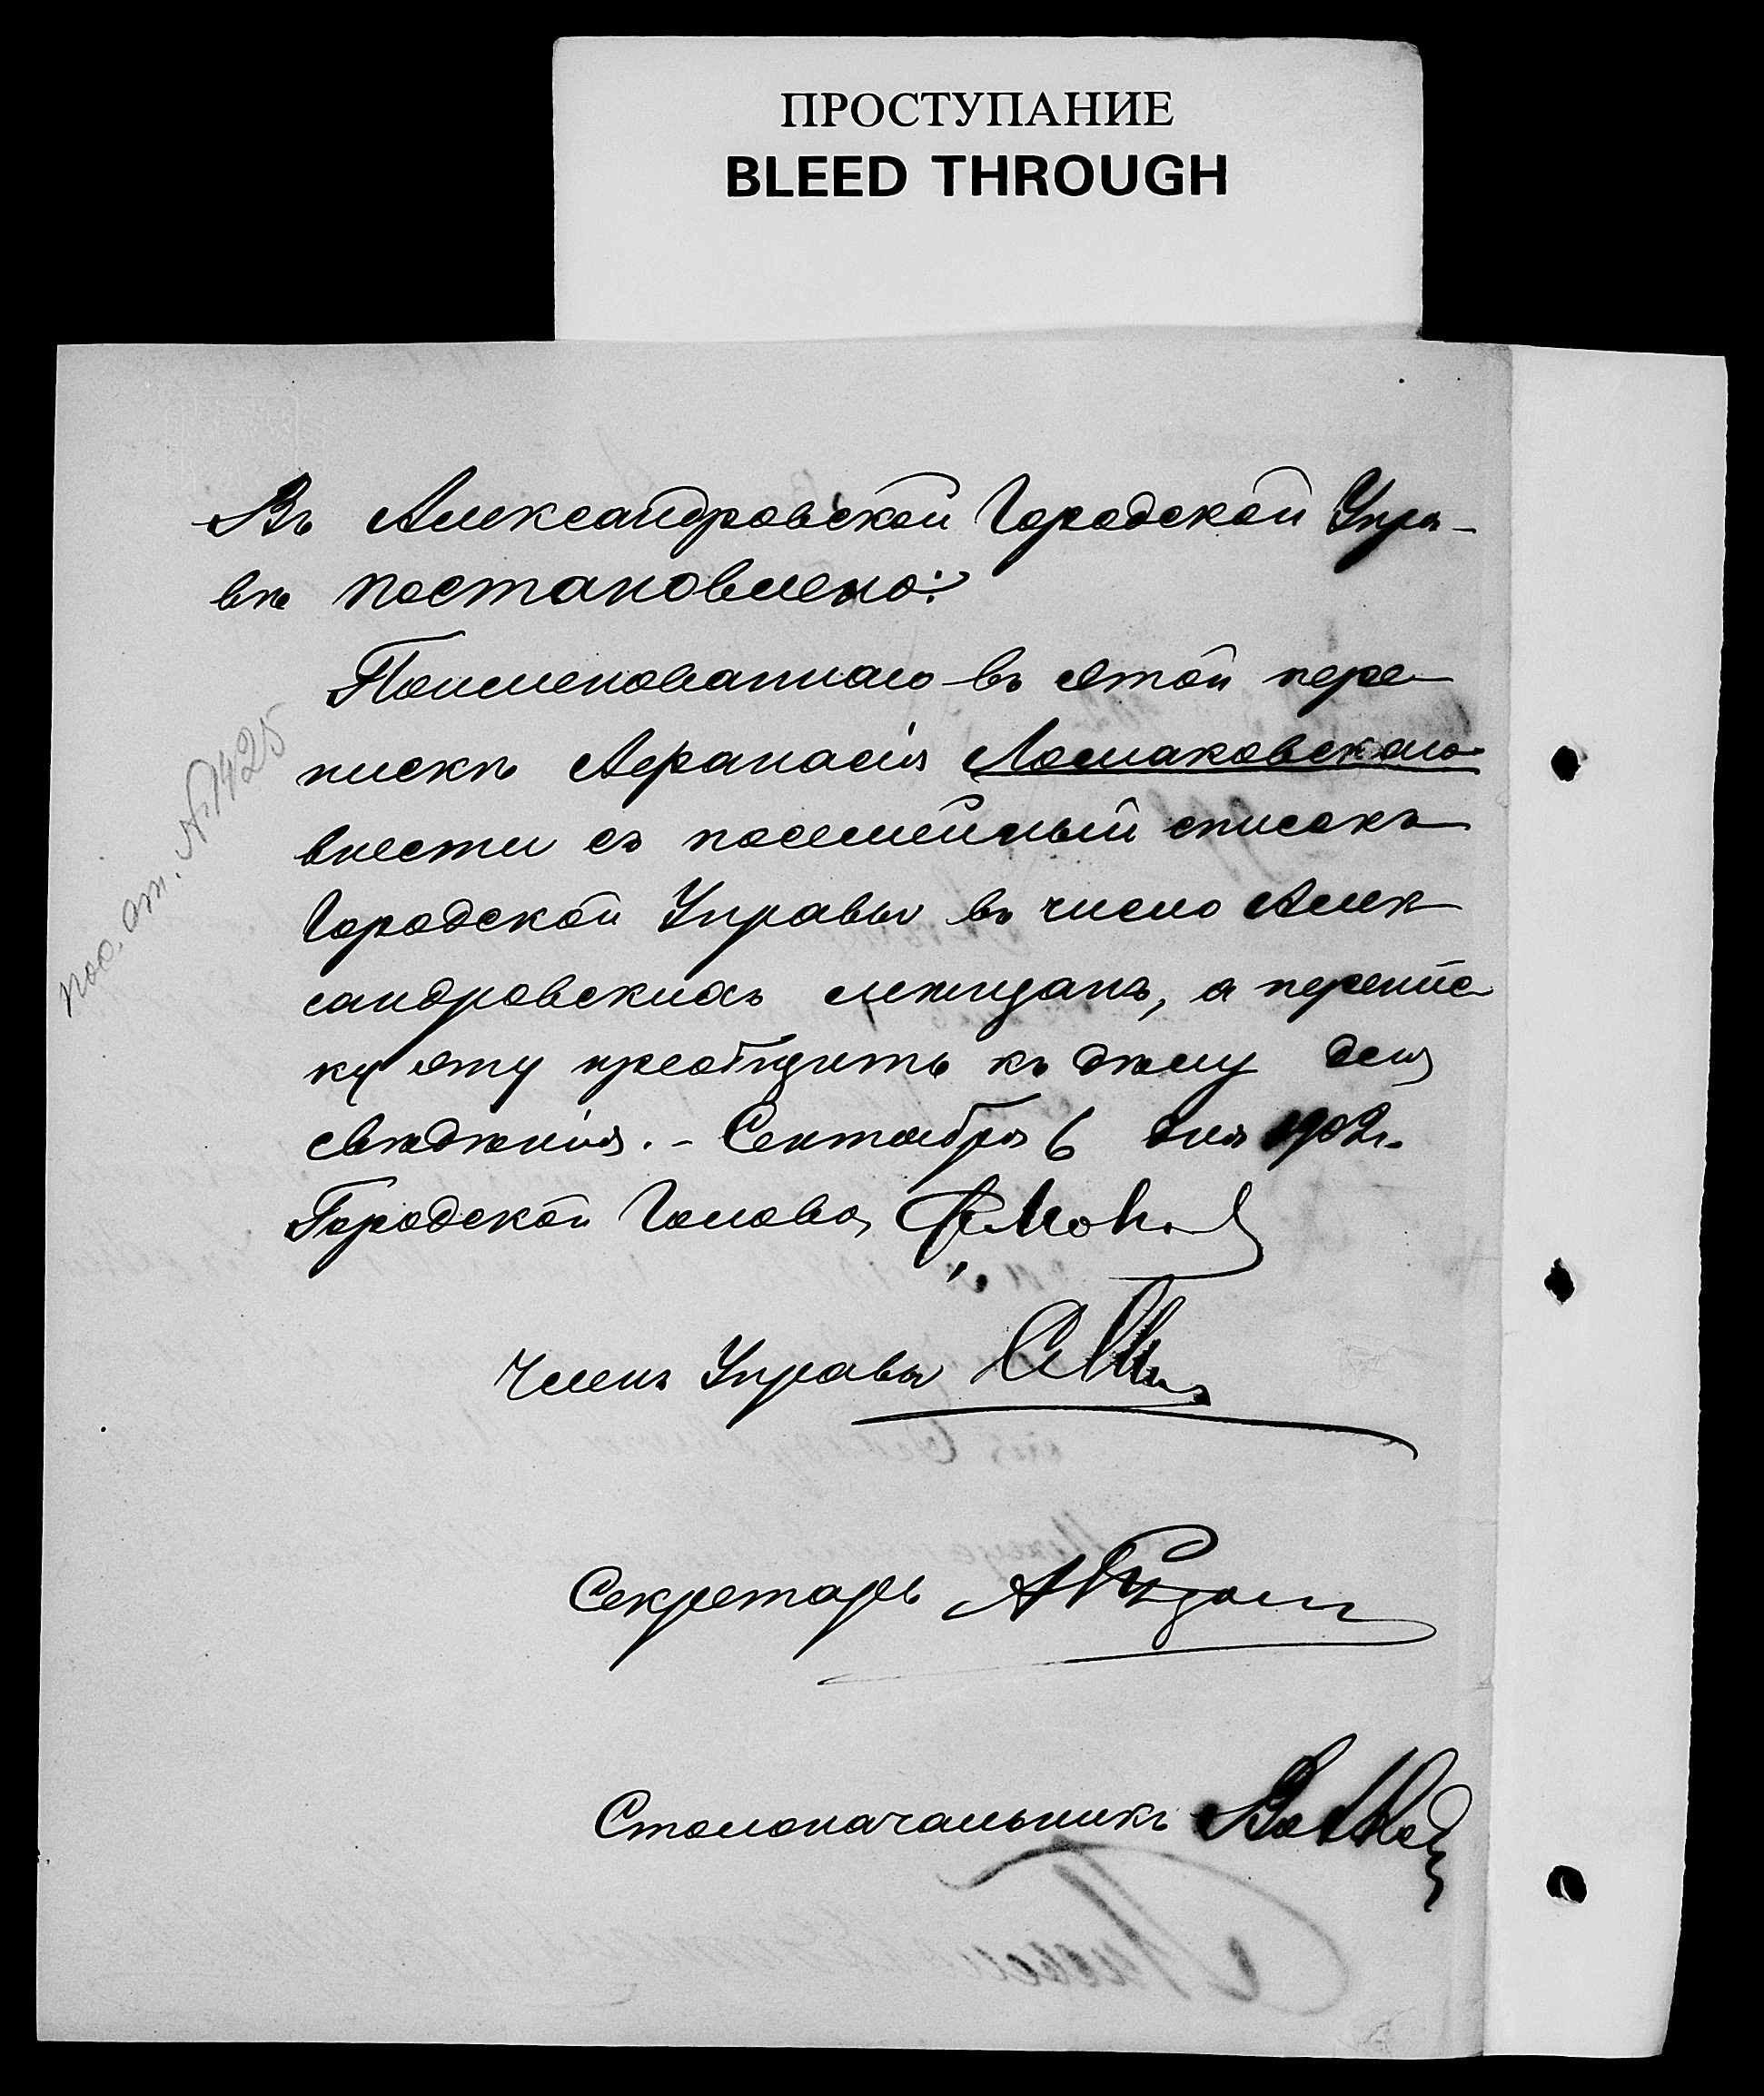 ПРОСТУПАНИЕ
BLEED THROUGH
Въ Александровской Городской Упра-
вѣ постановлено:
Поименованнаго въ этой пере-
пискѣ Афанасія Ломаковскаго
внести въ посемейный списокъ
Городской Управы въ число Алек
сандровскихъ мѣщанъ, а перепис
ку эту пріобщить къ дѣлу для
свѣдѣнія. - Сентября 6 дня 1902 г.
Городской Голова
Членъ Управы
Секретарь
Столоначальникъ
пос. от. № 1425